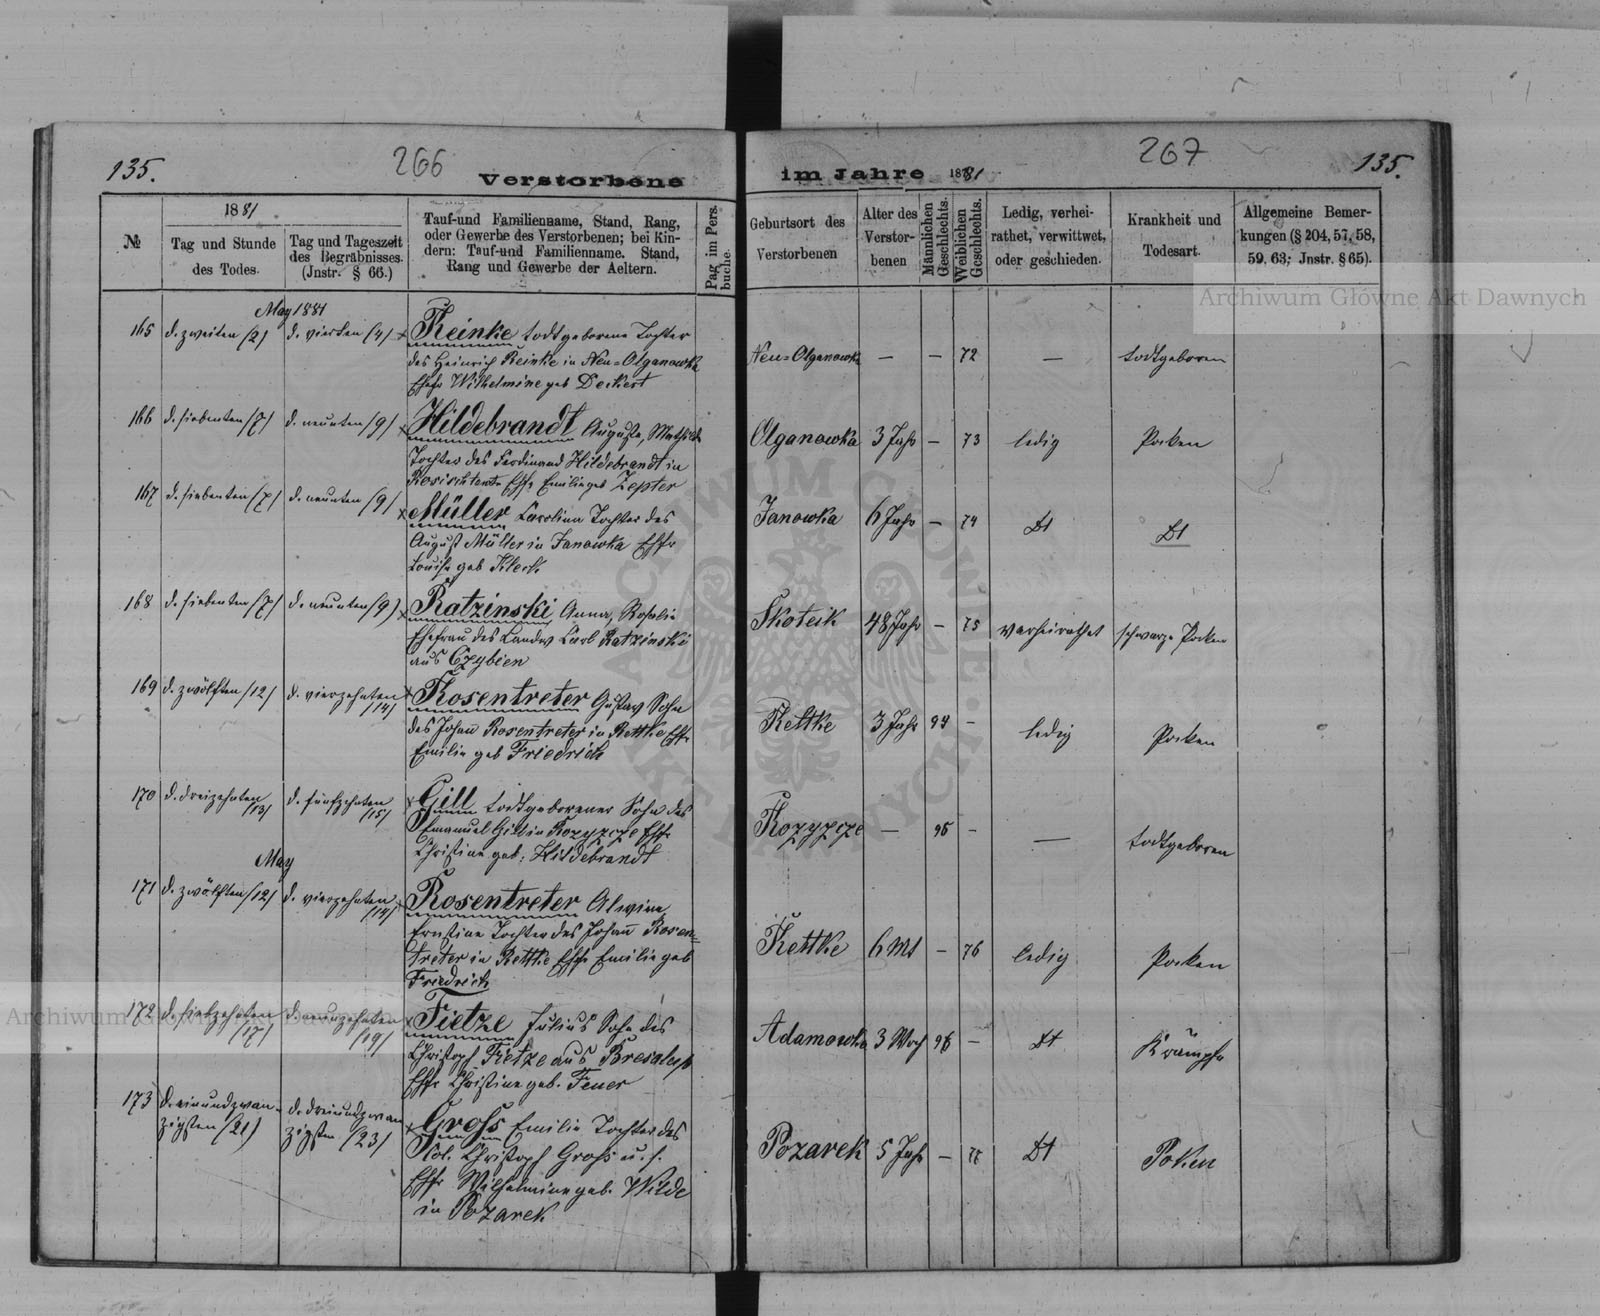 135.
266
Verstorbene
№
1881
Tag und Stunde
des Todes.
Tag und Tageszeit
des Begräbnisses.
(Jnstr. § 66.)
Tauf-und Familienname, Stand, Rang,
oder Gewerbe des Verstorbenen; bei Kin-
dern: Tauf-und Familienname. Stand,
Rang und Gewerbe der Aeltern.
Pag im Pers.
buche.
May 1881
165 d. zweiten /2/ d. vierten /4/ Reinke todtgeborene Tochter
des Heinrich Reinke in Neu=Olganowka
Ehfr Wilhelmine geb Deckert
166 d. siebenten /7/ d. neunten /9/ Hildebrandt Auguste, Mathilde
Tochter des Ferdinand Hildebrandt in
Ehfr Emilie geb Zepter
167 d. siebenten /7/ d. neunten /9/ Müller Carolina Tochter des
August Müller in Janowka Ehfr
Louise geb Kleck
168 d. siebenten /7/ d. neunten /9/ Ratzinski Anna, Rosalie
Ehefrau des Landw Carl Ratzinski
aus Czybien
169 d. zwölften /12/ d. vierzehnten /14/ Rosentreter Gustav Sohn
des Johann Rosentreter in Rettke Ehfr
Emilie geb Friedrich
170 d. dreizehnten /13/ d. fünfzehnten /15/ Gill todtgeborener Sohn des
Emanuel Gill in Kozyzcze Ehfr
Christine geb. Hildebrandt
May
171 d. zwölften /12/ d. vierzehnten /14/ Rosentreter Alwine
Ernstine Tochter des Johann Rosen=
treter in Rettke Ehfr Emilie geb
Friedrich
172 d. siebzehnten /17/ d. neunzehnten /19/ Tietze Julius Sohn des
Christoph Tietze aus
Ehfr Christine geb. Feuer
173 d. einundzwan- d. dreiundzwan
zigsten /21/ zigsten /23/ Groß Emilie Tochter des
Kol. Christoph Groß u. s.
Ehfr Wilhelmine geb. Wilde
in Pozarek
267
135.
im Jahre 1881
Geburtsort des
Verstorbenen
Alter des
Verstor-
benen
Männlichen
Geschlechts.
Weiblichen
Geschlechts.
Ledig, verhei-
rathet, verwittwet,
oder geschieden.
Krankheit und
Todesart.
Allgemeine Bemer-
kungen (§ 204, 57, 58,
59, 63; Jnstr. § 65).
Neu=Olganowka — — 72 — todtgeboren
Olganowka 3 Jahr — 73 ledig Pocken
Janowka 6 Jahr — 74 Dt Dt
Skoteik 48 Jahr — 75 verheirathet schwarze Pocken
Rettke 3 Jahr 94 — ledig Pocken
Kozyzcze — 95 — — todtgeboren
Rettke 6 Mt — 76 ledig Pocken
Adamowka 3 Woch 96 — Dt Krämpfe
Pozarek 5 Jahr — 77 Dt Poken
Archiwum Główne Akt Dawnych
Archiwum Główne Akt Dawnych
ARCHIWUM GŁÓWNE AKT DAWNYCH